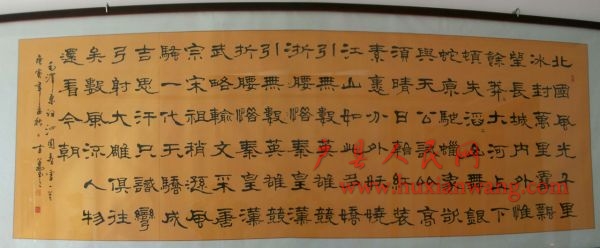 北國風光千里
冰封萬里雪飄
望長城內外惟
餘莽大河上下
頓失滔〻山舞銀
蛇原馳蠟象欲
與天公試比高
須晴日看紅裝
素裹分外妖嬈
江山如此多嬌
引無數英雄競
折腰惜秦皇漢
引無數英雄競
折腰惜秦皇漢
武略輸文采唐
宗宋祖稍遜風
騷一代天驕成
吉思汗只識彎
弓射大雕俱往
矣數風流人物
還看今朝
毛澤東詞沁園春雪一首
庚寅年
户县人民网
www.huxianwang.com